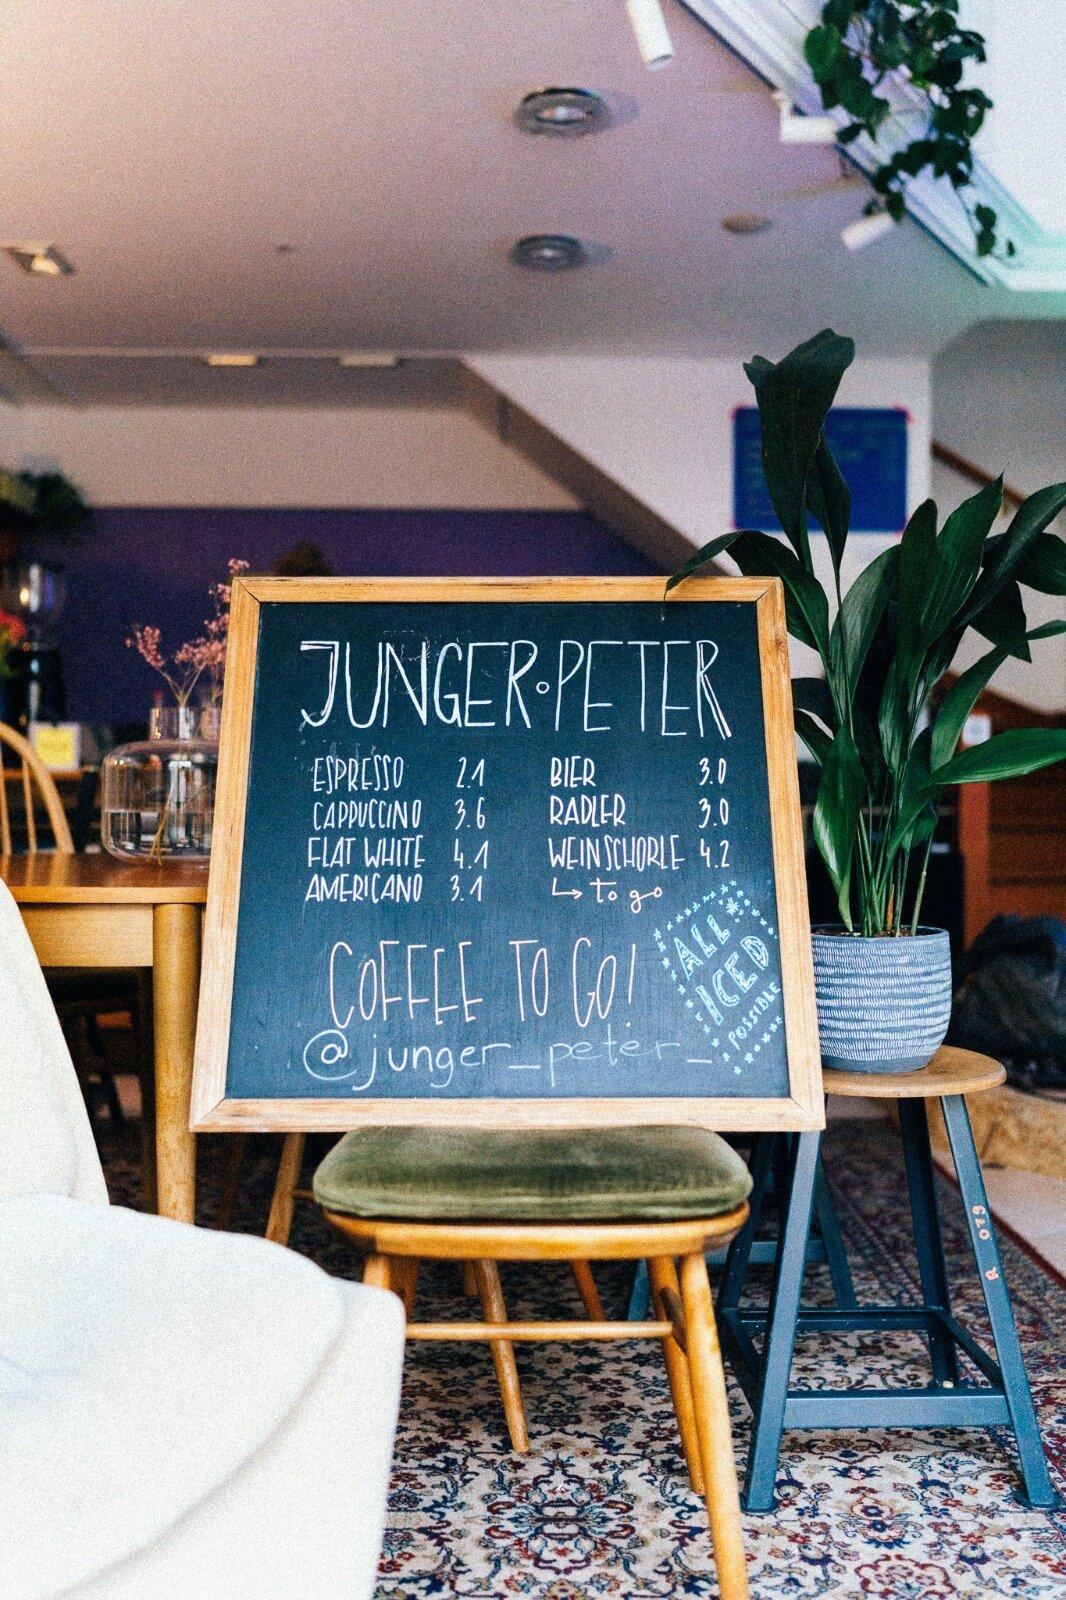 JUNGER·PETER
ESPRESSO 2.1
CAPPUCCINO 3.6
FLAT WHITE 4.1
AMERICANO 3.1
BIER 3.0
RADLER 3.0
WEINSCHORLE 4.2
↳ to go
ALL
ICED
POSSIBLE
COFFEE TO GO!
@junger_peter_